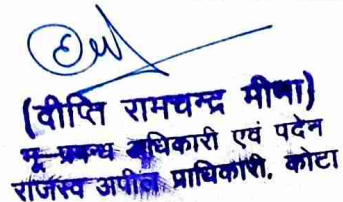 (दीप्ति रामचन्द्र मीणा)
भू प्रबन्ध अधिकारी एवं पदेन
राजस्व अपील प्राधिकारी, कोटा